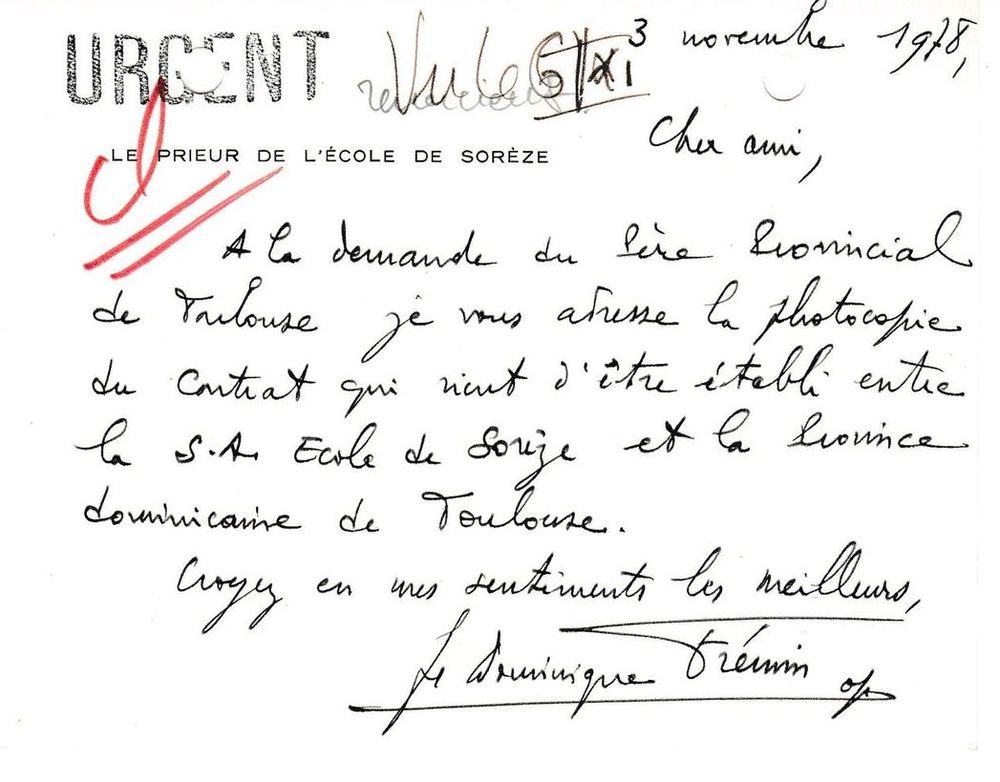 URGENT
3 novembre 1978,
6/XI
LE PRIEUR DE L'ÉCOLE DE SORÈZE
Cher ami,
A la demande du Père Provincial
de Toulouse je vous adresse la photocopie
du contrat qui vient d'être établi entre
la S.A. Ecole de Sorèze et la Province
dominicaine de Toulouse.
Croyez en mes sentiments les meilleurs,
fr Dominique Trémin op